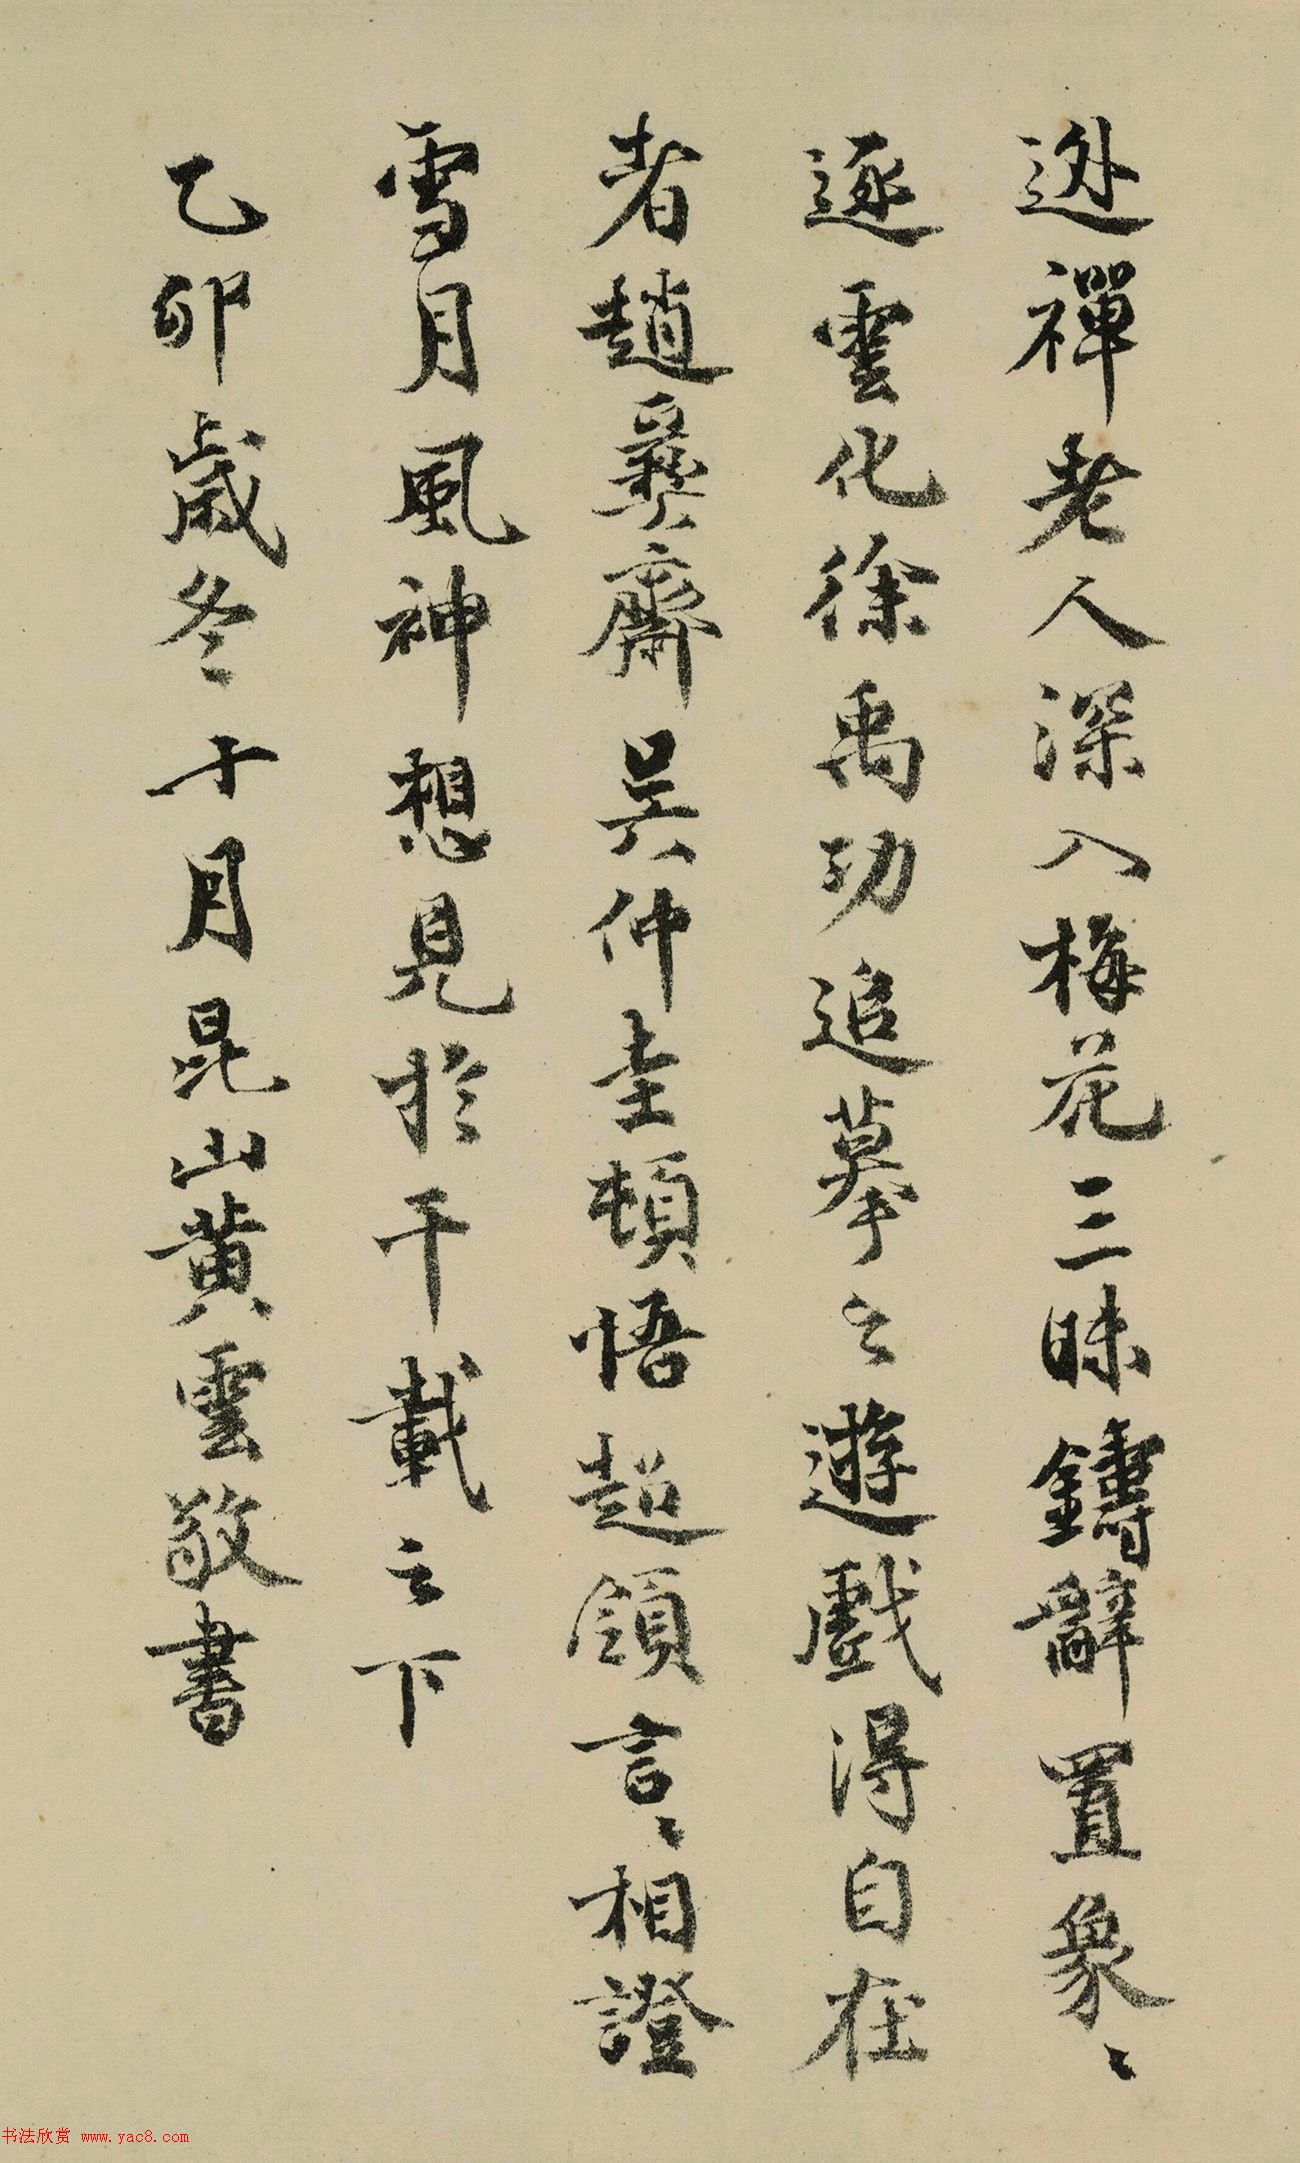 逃禪老人深入梅花三昧鑄辭置象〻
逐雲化徐禹功追摹之遊戲得自在
者趙彝齋吳仲圭頓悟超領言〻相證
雪月風神想見於千載之下
乙卯歲冬十月昆山黃雲敬書
书法欣赏 www.yac8.com